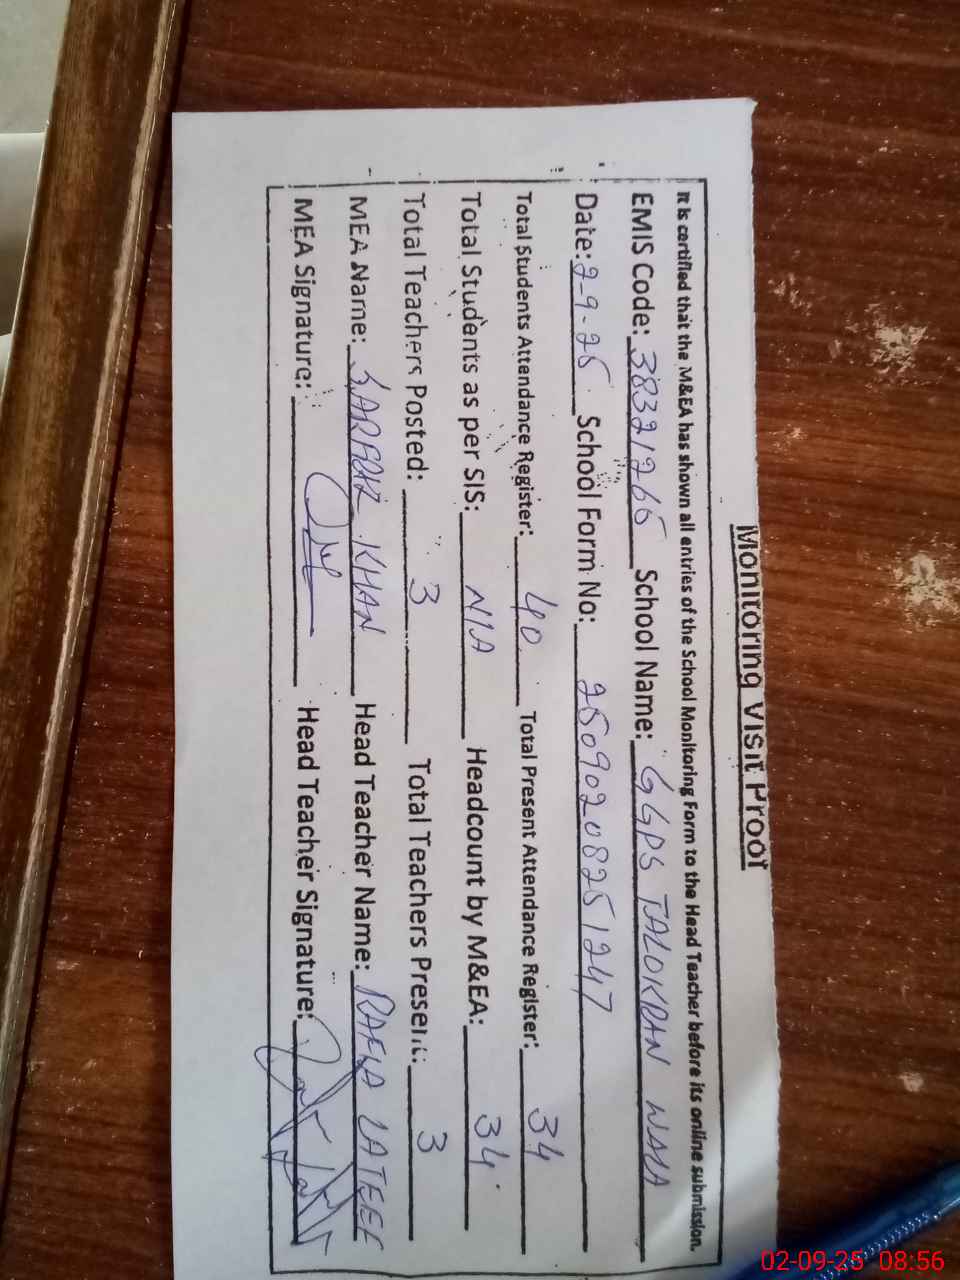 Monitoring Visit Proof
It is certified that the M&EA has shown all entries of the School Monitoring Form to the Head Teacher before its online submission.
EMIS Code: 38321266 School Name: GGPS TALOKRAN WALA
Date: 2-9-25 School Form No: 25090208251247
Total Students Attendance Register: 40 Total Present Attendance Register: 34
Total Students as per SIS: N/A Headcount by M&EA: 34
Total Teachers Posted: 3 Total Teachers Present: 3
MEA Name: SARFRAZ KHAN Head Teacher Name: LATEEF
MEA Signature: Head Teacher Signature:
02-09-25 08:56